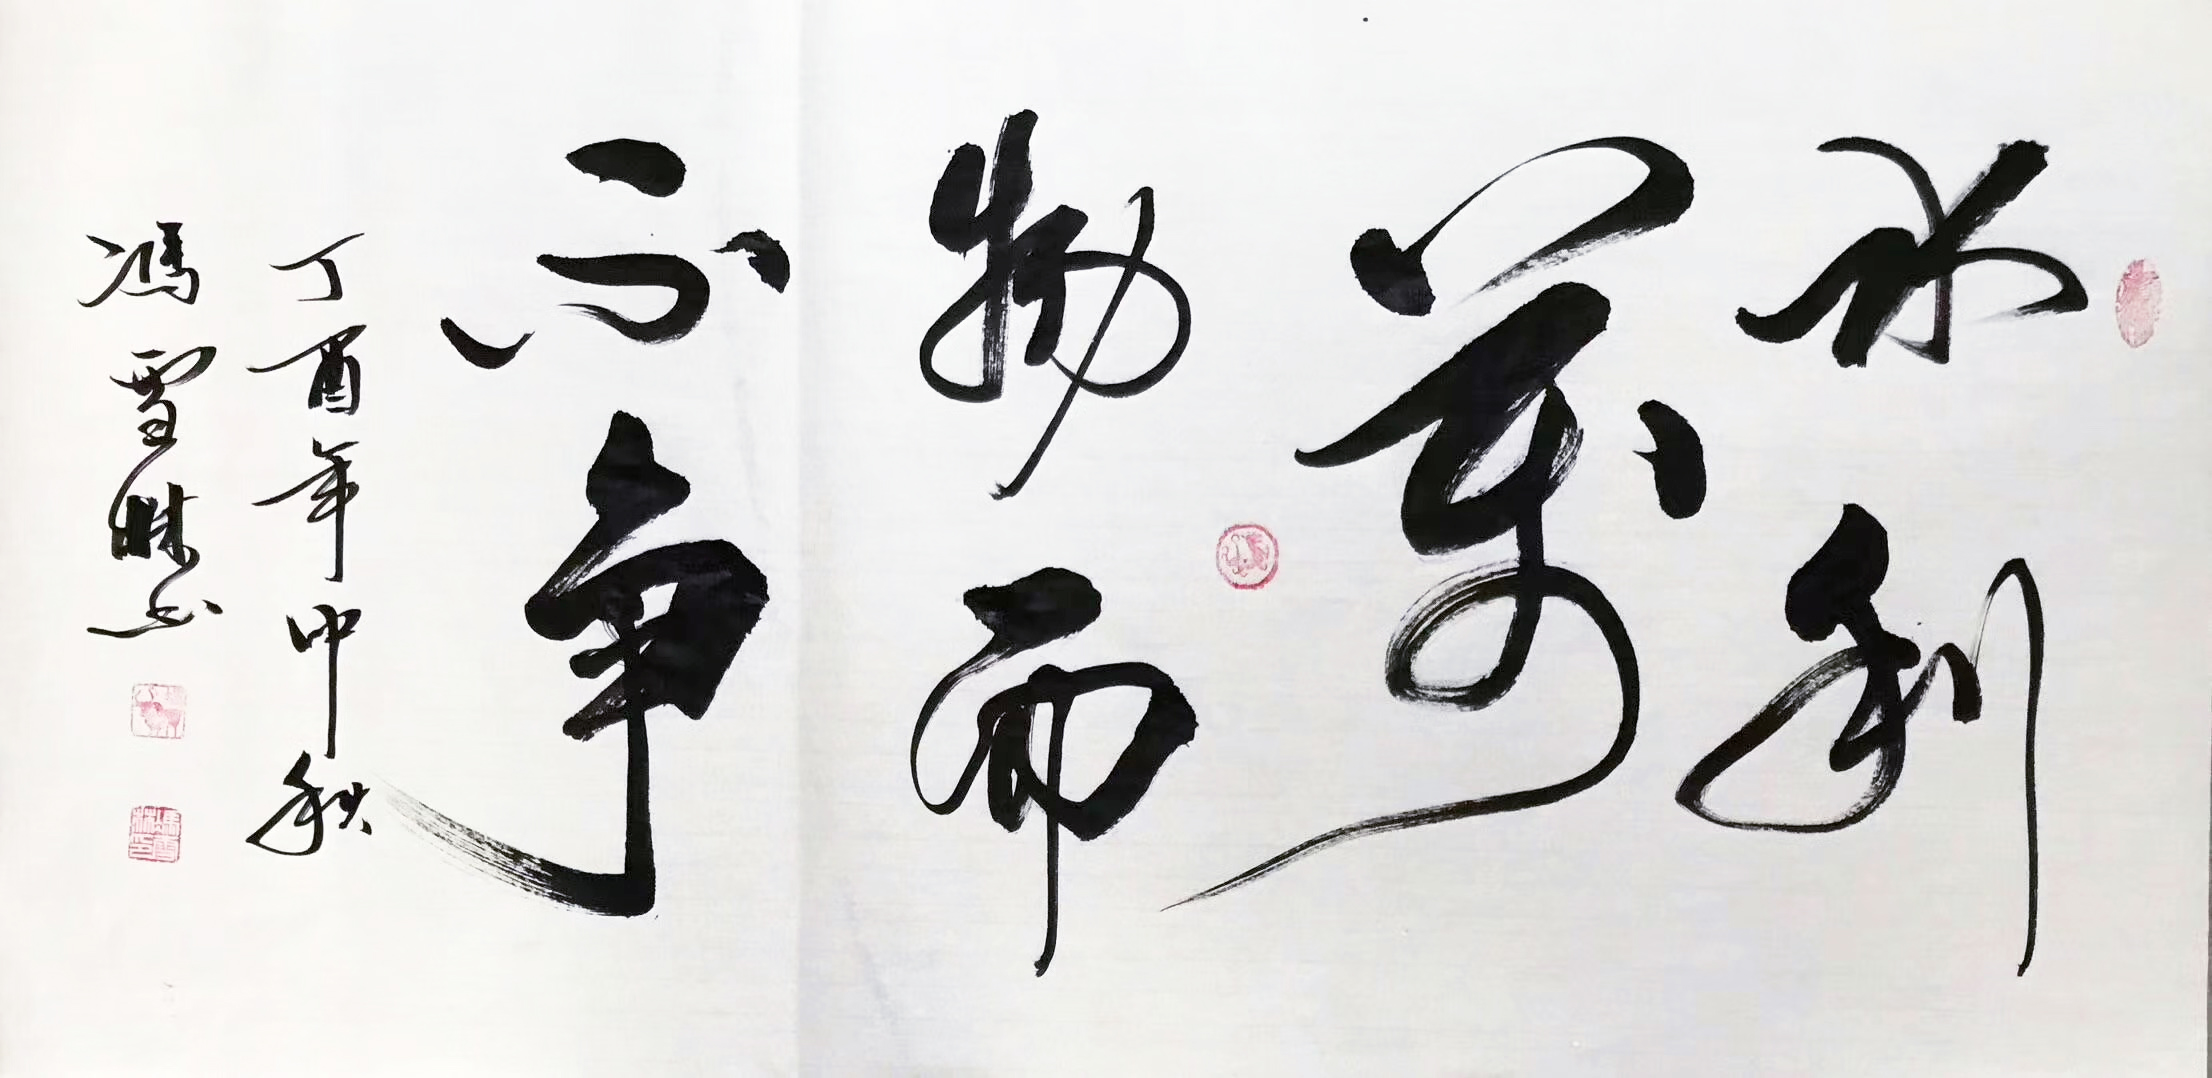 水利
萬
物而
不争
丁酉年中秋
馮雪林书